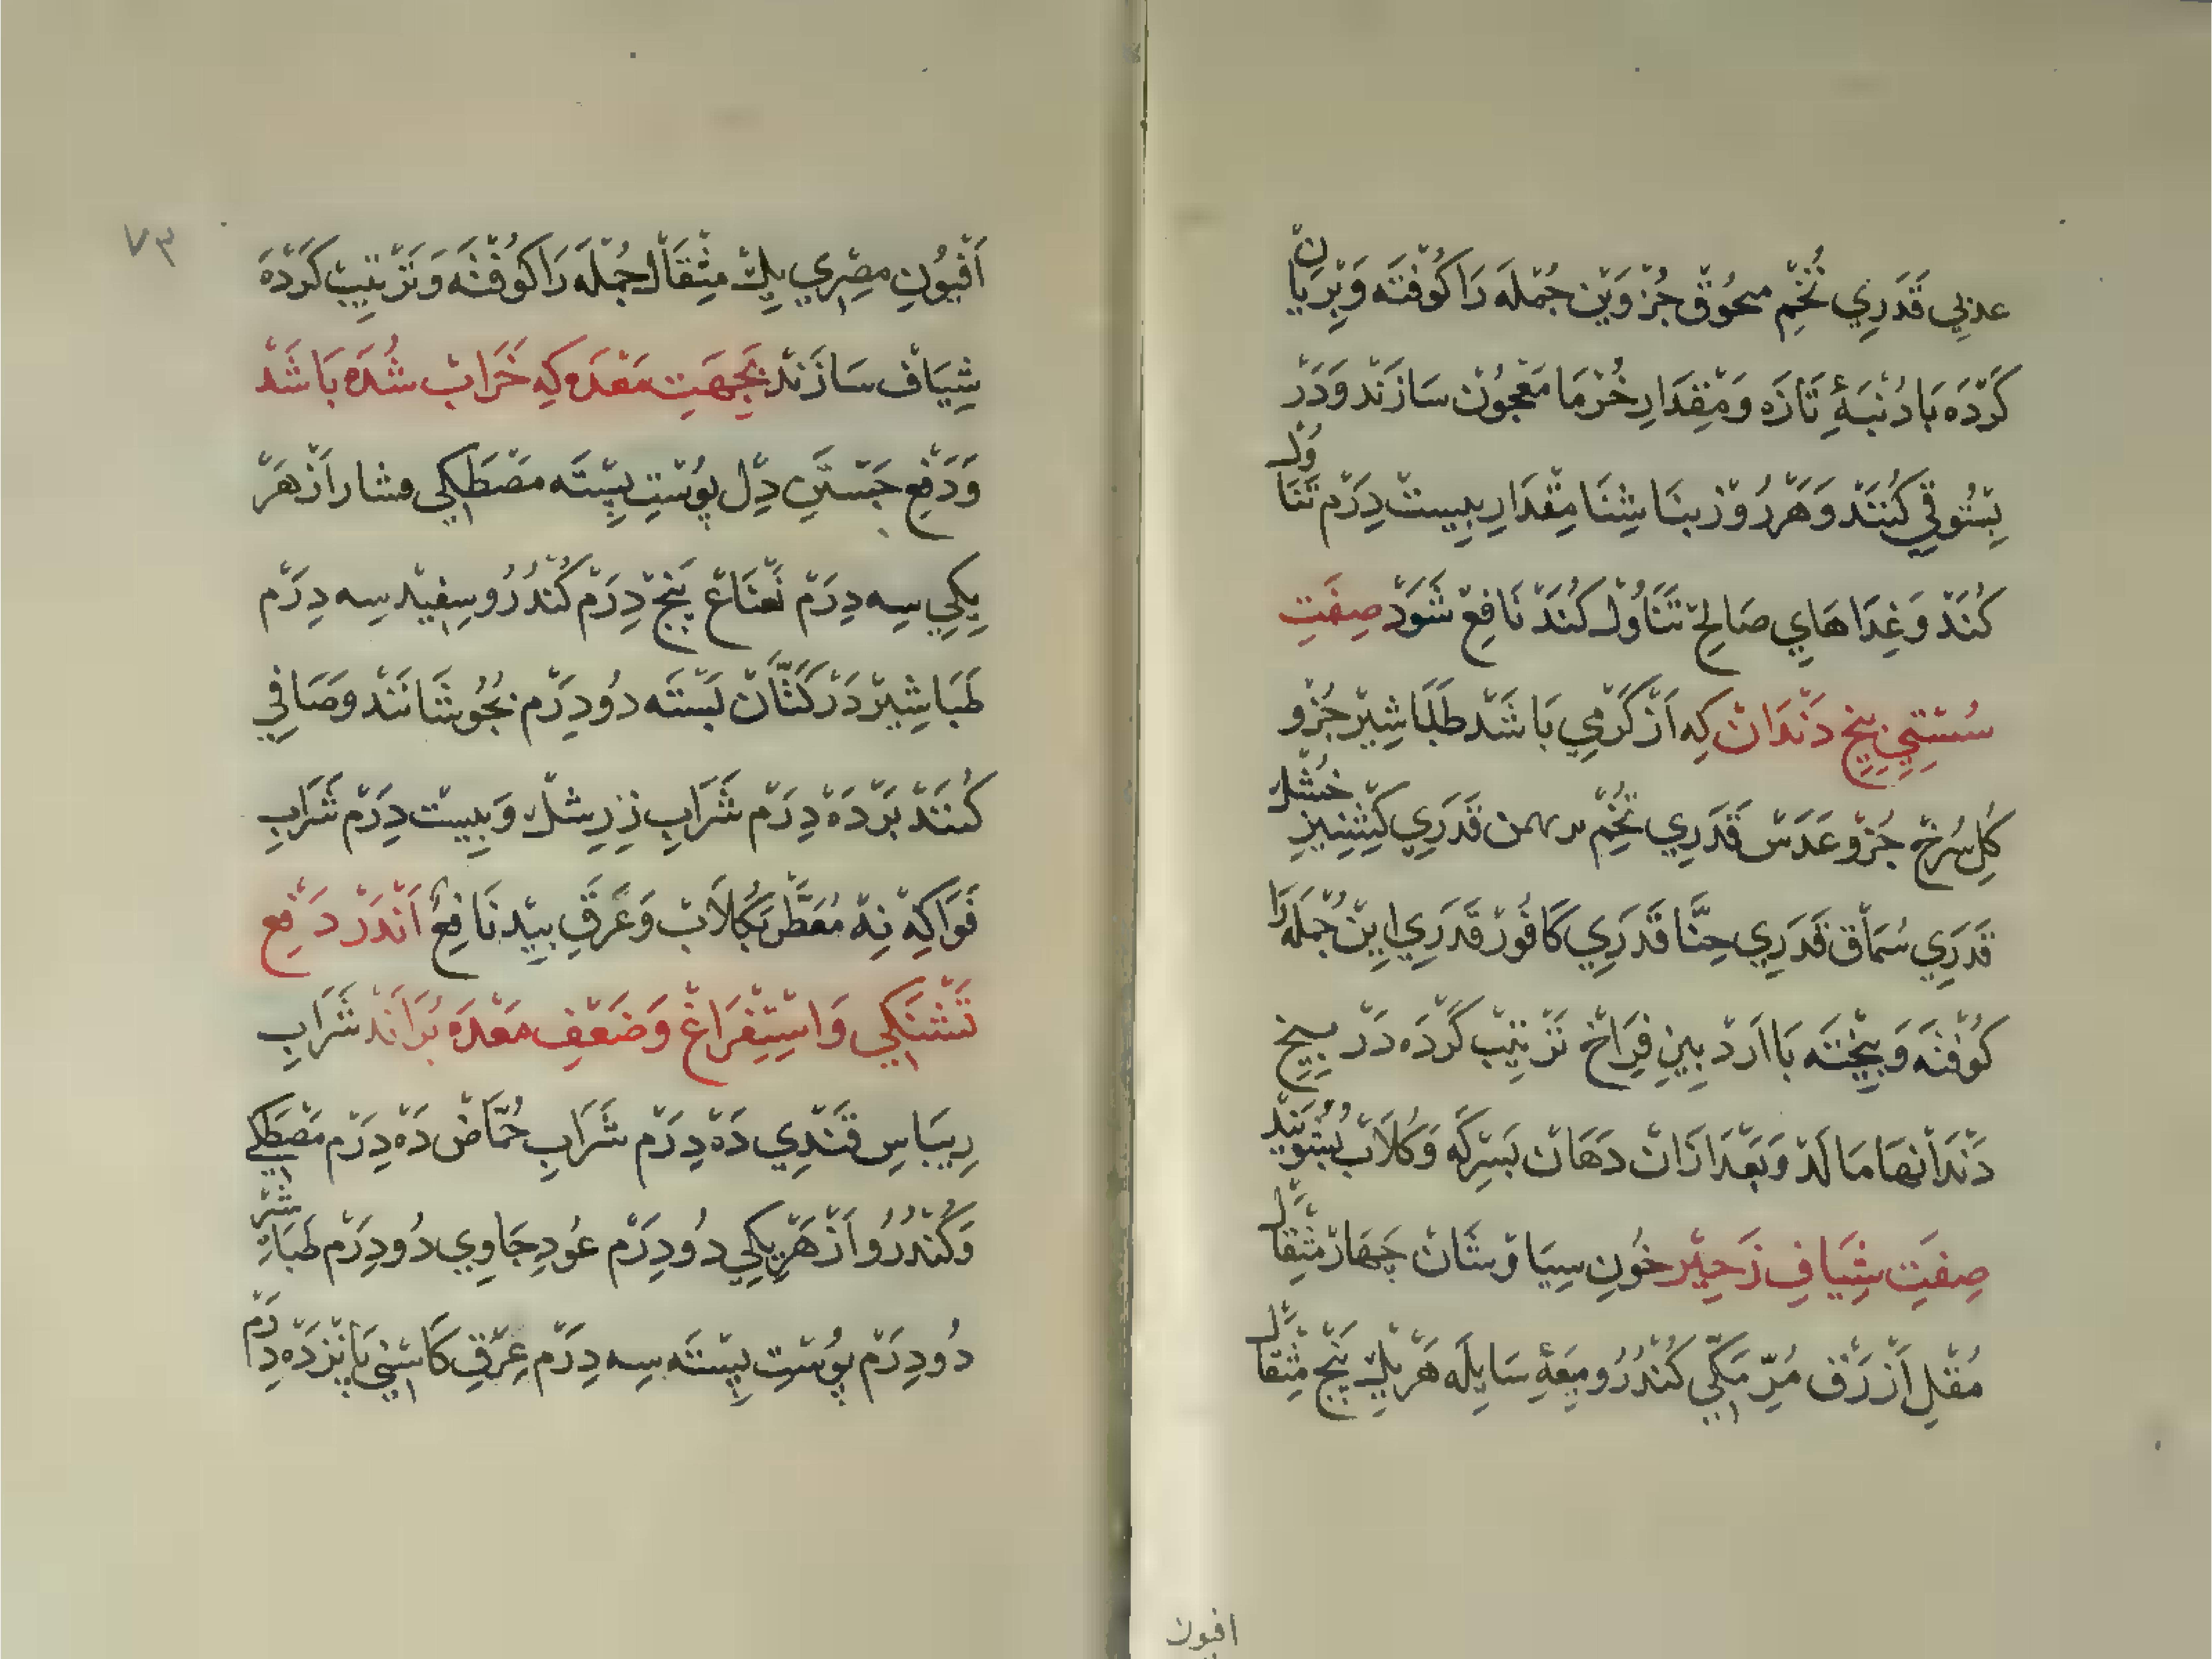 عدبي قَدَرِي تُخْمِ محُوقْ جُزْ وَيْن جُمْلَه رَا كُوفْتَه وَبِرْيَانْ
كَرْدَه بَا دُنْبَهٔ تَازَه وَمِقْدَارِ خُرْمَا مَعْجُونْ سَازَنْد وَدَرْ
بُسْتُوقِي كُنَنْد وَهَرْ رُوزْ بنَاشِتَا مِقْدَارِ بِيسْت دِرَم تَنَاوُلْ
كُنَنْد وَغِدَاهَايِ صَالِحْ تَنَاوُلْ كُنَنْد نَافِعْ شَوَدْ صِفَتِ
سُسْتِيِ بِيخِ دَنْدَانْ كِه اَزْ كَرْمِي بَاشَدْ طَبَاشِيرْ جُزْو
كُلِ سُرْخ جُزْو عَدَسْ قَدَرِي تُخْمِ بهمن قَدَرِي كِشْنِيزِ خُشْكْ
قَدَرِي سُمَاقْ قَدَرِي حِنَّا قَدَرِي كَافُورْ قَدَرِي اِينْ جُمْلَه رَا
كُوفْتَه وَبِيخْتَه بَا اَرْد بِينِ فِرَاخ تَرْتِيبْ كَرْدَه دَرْ بِيخِ
دَنْدَانْهَا مَالَدْ وَبَعْدَ ازَانْ دَهَانْ بَسِرْكَه وَكُلَابْ بُشُويَنْد
صِفَتِ شِيَافِ زَحِيْر خُونِ سِيَاوْشَانْ چَهَارْ مِثْقَالْ
مُقْلِ اَزْرَقْ مُرِّ مَكِّي كُنْدُرُو مِيعَهٔ سَايِلَه هَرْ يِكْ پَنْج مِثْقَالْ
افيون
٧٣
اَفْيُونِ مِصْرِي يِكْ مِثْقَالْ جُمْلَه رَا كُوفْتَه وَتَرْتِيبْ كَرْدَه
شِيَافْ سَازَنْد بَجِهَتِ مَعْدَه كِه خَرَابْ شُدَه بَاشَدْ
وَدَفْعِ جَسْتَنِ دِلْ پُوسْتِ پِسْتَه مَصْطَكِي مشار اَزْ هَرْ
يِكِي سِه دِرَمْ نَعْنَاعْ پَنْج دِرَمْ كُنْدُرُو سِفِيْد سِه دِرَمْ
طَبَاشِيرْ دَرْ كَتَّانْ بَسْتَه دُو دِرَم بجُوشَانَنْد وَصَافِي
كُنَنْد بَرْ دَهْ دِرَمْ شَرَابِ زِرِشْكْ وَبِيسْت دِرَمْ شَرَابِ
فَوَاكِهْ نِهْ مُعَطَّرْ بَكُلَابْ وَعَرَقِ بِيدْ نَافِعْ اَنْدَرْ دَفْعِ
تَشْنَكِي وَاسْتِفْرَاغْ وَضَعْفِ مَعْدَه بُرَانَدْ شَرَابِ
رِيبَاسِ قَنْدِي دَهْ دِرَمْ شَرَابِ حُمَّاضْ دَهْ دِرَمْ مَصْطَكِي
وَكُنْدُرُو اَزْ هَرْ يِكِي دُو دِرَمْ عُودِ جَاوِي دُو دِرَمْ طَبَاشِرْ
دُو دِرَمْ پُوسْتِ پِسْتَه سِه دِرَمْ عِرْقِ كَاسْنِي پَانْزَدَه دِرَمْ